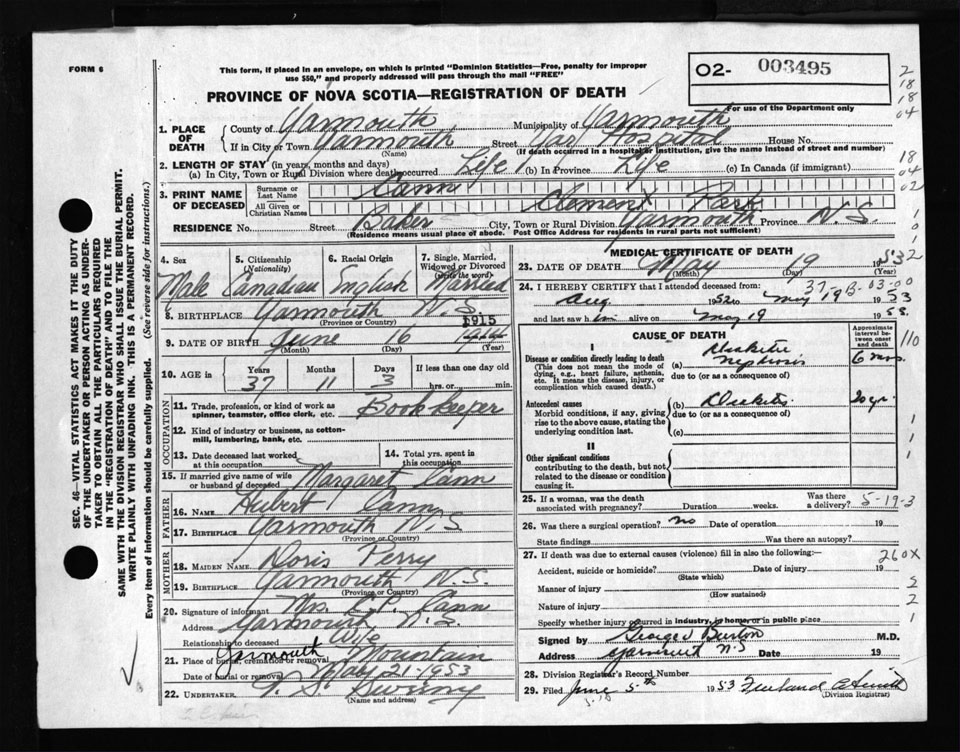 FORM 6
This form, if placed in an envelope, on which is printed "Dominion Statistics—Free, penalty for improper
use $50," and properly addressed will pass through the mail "FREE"
PROVINCE OF NOVA SCOTIA—REGISTRATION OF DEATH
02- 003495
For use of the Department only
2
18
18
04
18
04
02
1
0
1
2
1. PLACE OF DEATH
County of Yarmouth Municipality of Yarmouth
If in City or Town Yarmouth Street Yar Hospital House No.
(Name) (If death occurred in a hospital or institution, give the name instead of street and number)
2. LENGTH OF STAY (in years, months and days)
(a) In City, Town or Rural Division where death occurred Life (b) In Province Life (c) In Canada (if immigrant)
3. PRINT NAME OF DECEASED
Surname or Last Name Cann
All Given or Christian Names Clement Park
RESIDENCE No. Street Baker City, Town or Rural Division Yarmouth Province N.S.
(Residence means usual place of abode. Post Office Address for residents in rural parts not sufficient)
SEC. 46—VITAL STATISTICS ACT MAKES IT THE DUTY
OF THE UNDERTAKER OR PERSON ACTING AS UNDER-
TAKER TO OBTAIN ALL THE PARTICULARS REQUIRED
IN THE "REGISTRATION OF DEATH" AND TO FILE THE
SAME WITH THE DIVISION REGISTRAR WHO SHALL ISSUE THE BURIAL PERMIT.
WRITE PLAINLY WITH UNFADING INK. THIS IS A PERMANENT RECORD.
Every item of information should be carefully supplied. (See reverse side for instructions.)
4. Sex
Male
5. Citizenship
(Nationality)
Canadian
6. Racial Origin
English
7. Single, Married,
Widowed or Divorced
(write the word)
Married
8. BIRTHPLACE Yarmouth N.S.
(Province or Country)
1915
9. DATE OF BIRTH June 16 1914
(Month) (Day) (Year)
10. AGE in
Years Months Days If less than one day
37 11 3 hrs. or min.
OCCUPATION
11. Trade, profession, or kind of work as
spinner, teamster, office clerk, etc. Bookkeeper
12. Kind of industry or business, as cotton-
mill, lumbering, bank, etc.
13. Date deceased last worked
at this occupation
14. Total yrs. spent in
this occupation
15. If married give name of wife
or husband of deceased Margaret Cann
FATHER
16. Name Hubert Cann
17. Birthplace Yarmouth N.S
(Province or Country)
MOTHER
18. Maiden Name Doris Perry
19. Birthplace Yarmouth N.S.
(Province or Country)
20. Signature of informant Mrs. C.P. Cann
Address Yarmouth N.S.
Relationship to deceased Wife
21. Place of burial, cremation or removal Yarmouth Mountain
Date of burial or removal May 21 1953
22. UNDERTAKER Sweeny
(Name and address)
MEDICAL CERTIFICATE OF DEATH
23. DATE OF DEATH May 19 1953
(Month) (Day) (Year)
24. I HEREBY CERTIFY that I attended deceased from:
37-B-03-00
Aug 1952 to May 19 1953
and last saw him alive on May 19 1953
CAUSE OF DEATH
Approximate
interval be-
tween onset
and death
110
I
Disease or condition directly leading to death
(This does not mean the mode of
dying, e.g., heart failure, asthenia,
etc. It means the disease, injury, or
complication which caused death.)
(a) Diabetic Nephrosis 6 mos.
due to (or as a consequence of)
Antecedent causes
Morbid conditions, if any, giving
rise to the above cause, stating the
underlying condition last.
(b) Diabetes 20 yr.
due to (or as a consequence of)
(c)
II
Other significant conditions
contributing to the death, but not
related to the disease or condition
causing it.
1
1
1
25. If a woman, was the death
associated with pregnancy? Duration weeks. Was there
a delivery? 5-19-3
26. Was there a surgical operation? no Date of operation 19
State findings Was there an autopsy?
27. If death was due to external causes (violence) fill in also the following:—
260X
Accident, suicide or homicide? Date of injury 19
(State which)
Manner of injury
(How sustained)
Nature of injury
Specify whether injury occurred in industry, in home, or in public place
2
1
Signed by George Burton M.D.
Address Yarmouth N.S Date 19
28. Division Registrar's Record Number
29. Filed June 5th 1953
(Division Registrar)